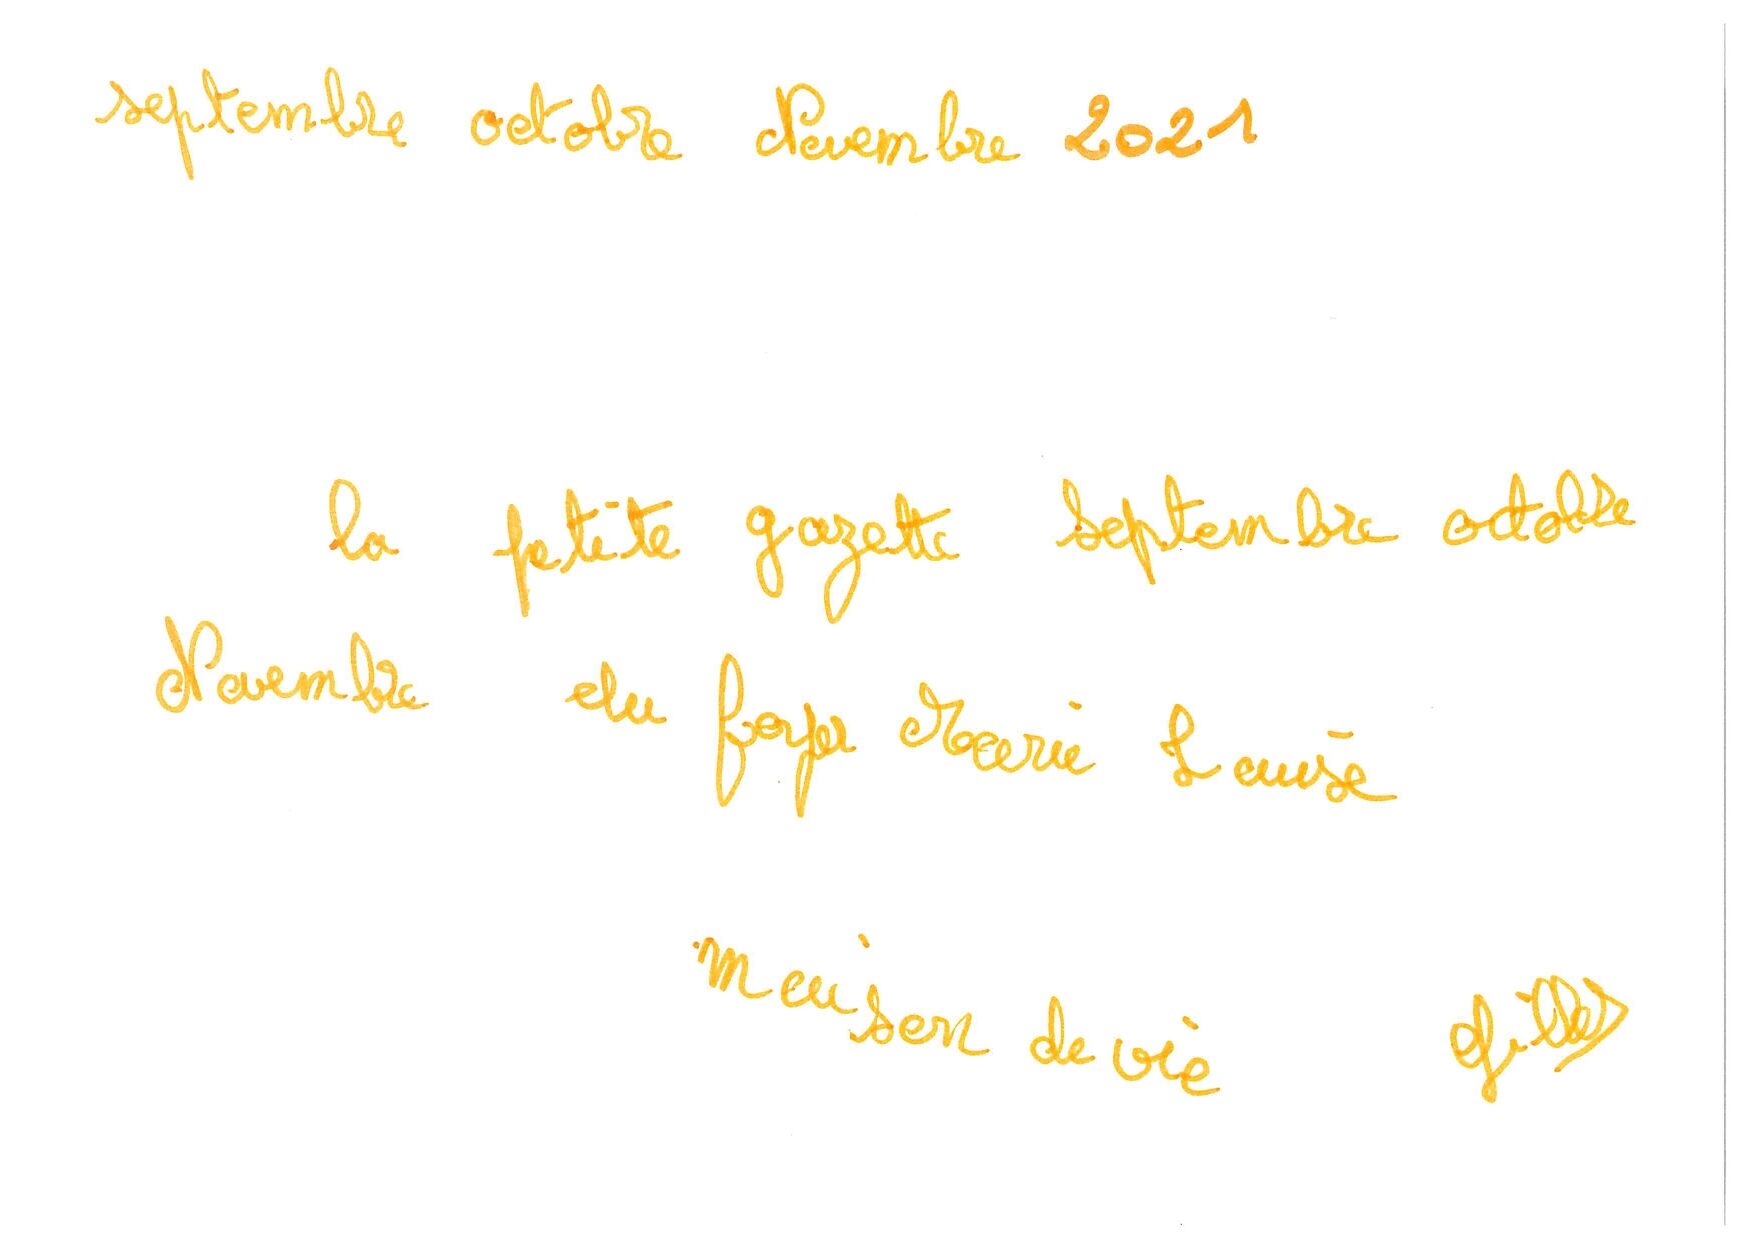 septembre octobre Novembre 2021
la petite gazette septembre octobre
Novembre du foyer Marie Louise
maison de vie Gilles